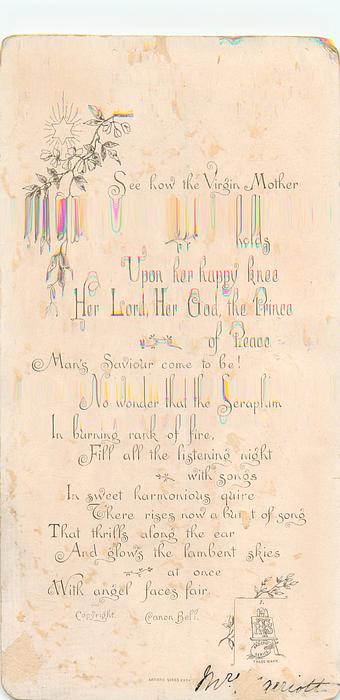 See how the Virgin Mother
holds
Upon her happy knee
Her Lord, Her God, the Prince
of Peace
Man's Saviour come to be!
No wonder that the Seraphim
In burning rank of fire,
Fill all the listening night
with songs
In sweet harmonious quire
There rises now a burst of song
That thrills along the ear
And glows the lambent skies
at once
With angel faces fair.
Copyright. Canon Bell.
TRADE MARK
ARTISTIC SERIES
Mrs